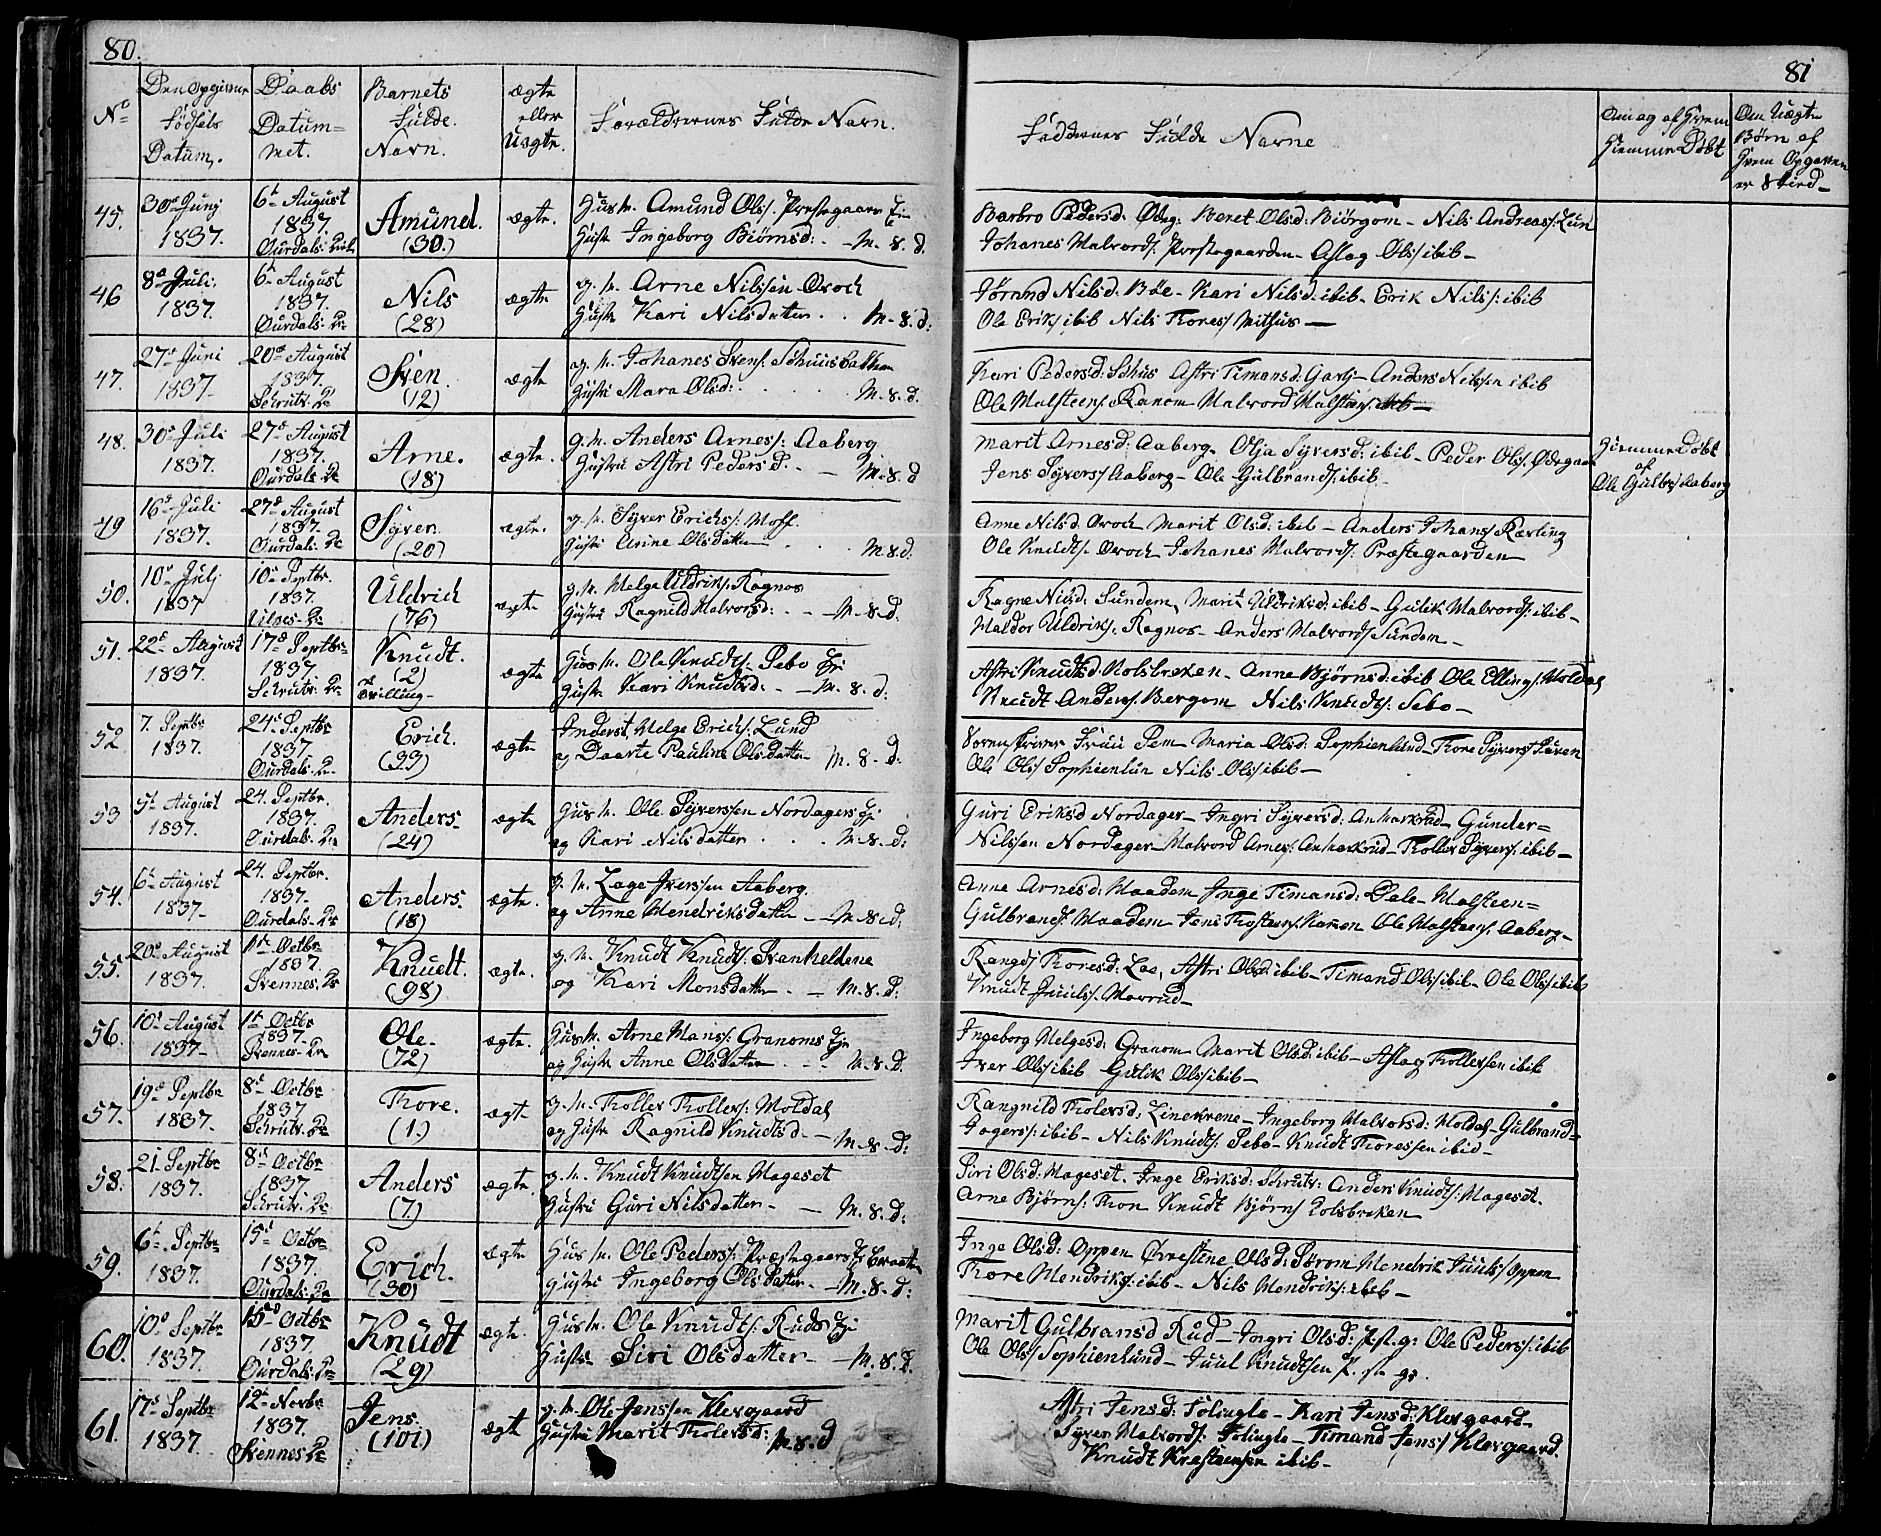 80.
81
No
Den opgivne
Fødsels
Datum.
Daabs
Datum=
met.
Barnets
Fulde
Navn.
ægte
eller
Uægte.
Forældrernes Fulde Navn.
Faddernes Fulde Navne
Om og af Hvem
Hiemme Døbt
Om Uægte
Børn af
Hvem Opgaven
er Skied
45.
30 Juny
1837.
6 August
1837.
Ourdals
Amund.
(30.)
ægte.
Husm. Amund Ols. Præstegaards Ei
Hustr. Ingeborg Biørnsd: - M. & d.
Barbro Pedersd. Beret Olsd: Biørgom - Nils Andreas: Lun
Johanes Halvords. Præstegaarden - Aslag Ols: ibib -
46
8 Juli.
1837.
6 August
1837.
Ourdals. K
Nils
(28)
ægte
g. m. Arne Nilssen Qvoch
Hustr Kari Nilsdatter . . M. & d:
Jørand Nilsd. Bøe - Kari Nilsd: ibib - Erik Nils: ibib
Ole Eriks ibib Nils Thores
47.
27 Juni
1837
20 August
1837.
Schrutv. K
Sven.
(12)
ægte
g. m. Johanes Svens. Schuusbakken
Hustru Mara Olsd: . . M. & d.
Kari Pedersd: Schus Astri Timansd: - Anders Nilssen ibib
Ole Halsteens. Ranom Halvord Halsteens. ibib -
48.
30 Juli
1837.
27 August
1837.
Ourdals K
Arne.
(18)
ægte.
g. m. Anders Arnes: Aaberg
Hustru Astri Pedersd. - M. & d
Marit Arnesd: Aaberg. Olja Syversd: ibib - Peder Ols. Ødegaar
Jens Syvers Aaberg - Ole Gulbrands. ibib
Hiemmedøbt
af
Ole Gulbr. Aaberg
49
16 Juli
1837.
27 August
1837.
Ourdals: K
Syver
(20)
ægte.
g. m. Syver Erichs: Hoff
Hustr. Anne Olsdatter . . M & d.
Anne Nilsd. Qvoch Marit Olsd: ibib - Anders Johans Ræving
Ole Knudts. Qvoch Johanes Halvords. Præstegaarden
50.
10 July
1837
10 Septbr.
1837.
K
Uldrich
(76)
ægte
g. m. Helge Uldriks. Ragnos
Hustr. Ragnild Halvorsd: - M. & d.
Ragne Nilsd: Sundem, Marit Uldriksd: ibib - Gulik Halvords: ibib -
Haldor Uldriks. Ragnos - Anders Halvords Sundem -
51.
22 August
1837.
17 Septbr
1837
Schrutv. K
Knudt.
(2)
Tvilling
ægte
Hus m. Ole Knudts. Sebo Ei
Hustr Kari Knudtsd: - M. & d:
Astri Knudtsd Kolsbreken - Anne Bjørnsd: ibib Ole Ellings: Moldas
Knudt Anders. Bergom Nils Knudts: Sebo -
52
7. Septbr
1837.
24 Septbr
1837
Ourdals. K.
Erich.
(39)
ægte
Inderst. Helge Erichs. Lund
og Daarte Pauline Olsdatter M. & d:
Sorenskriver Fruii Sem Maria Olsd. Sophienlund Thore Syvers
Ole Ols Sophienlun Nils Ols: ibib -
53
5 August
1837.
24. Septbr.
1837.
Ourdals. K
Anders.
(24)
ægte
Hus m. Ole Syverssen Nordagers Ei
og Kari Nilsdatter . . M. & d:
Guri Eriksd Nordager - Ingri Syversd: Gunder=
Nilssen Nordager - Halvord Arnes: - Tholler Syvers: ibib -
54.
6 August
1837.
24. Septbr.
1837.
Ourdals. K
Anders.
(18)
ægte.
g. m. Lage Iverssen Aaberg.
og Anne Hendriksdatter - M. & d:
Anne Arnesd: Maadem Inge Timansd: Dale - Halsteen=
Gulbrands. Maadem Jens Ole Halsteens. Aaberg -
55.
20 August
1837.
1 Octbr
1837.
Svennes. K
Knudt.
(98)
ægte.
g. m. Knudt Knudts. Svanheldene
og Kari Monsdatter . - M. & d:
Rangdj Thoresd: Lae, Astri Olsd: ibib - Timand Ols: ibib - Ole Ols: ibib
Knudt Juuls. Movrud -
56.
10 August
1837 -
1 Octbr
1837.
Svennes. K
Ole.
(72)
ægte.
Hus m. Arne Hans: Granoms Ei
og Hustr Anne Olsdatter . - M. & d.
Ingeborg Helgesd: Granom Marit Olsd: ibib - Aslag Thollefsen ibib
Iver Ols: ibib Gulik Ols: ibib -
57.
19 Septbr
1837.
8 Octbr
1837
Schrutv. K
Thore.
(1.)
ægte
g. m. Tholler Thollers: Moldas
og Hustr Ragnild Knudtsd. - M. & d:
Rangnild Tholersd: - Ingeborg Halvorsd: Moldas - Gulbrand=
Jogers: ibib - Nils Knudts. Sebo - Knudt Thoressen ibid -
58.
21. Septbr
1837.
8 Octbr
1837
Schrutv. K
Anders
(7)
ægte.
g. m. Knudt Knudtsen Hageset
Hustru Guri Nilsdatter - - M. & d:
Siri Olsd: Hageset. Inge Eriksd: Schrutv: Anders Knudts: Hageset.
Arne Bjørns: Thon Knudt Bjørns Kolsbreken
59.
6 Septbr
1837.
15 Octbr
1837.
Ourdals. K
Erich.
(30)
ægte
Hus m. Ole Peders: Præstegaards E. Braaten
Hustru Ingeborg Olsdatter - M. & d:
Inge Olsd: Oppen Christine Olsd: Sørom Hendrik Juuls Oppen
Thore Hendriks: ibib - Nils Hendriks: ibib -
60.
10 Septbr
1837.
15 Octbr
1837.
Ourdals. K
Knudt
(29)
ægte.
Hus m. Ole Knudts. Ruds Ei
Hustru Siri Olsdatter - M. & d.
Marit Gulbransd Rud - Ingri Olsd: p. st. g: Ole Peders: ibib
Ole Ols: Sophienlund - Juul Knudtsen P. st. g:
61.
17 Septbr
1837.
12 Novbr
1837.
Svennes K
Jens.
(101)
ægte
g. m. Ole Jenssen Klevgaard
Hustru Marit Tholersd: M & d
Astri Jensd: Folingle - Kari Jensd: Klevgaard -
Syver Halvords. Folingle - Timand Jens Klevgaard.
Knudt Kresteensen ibib -